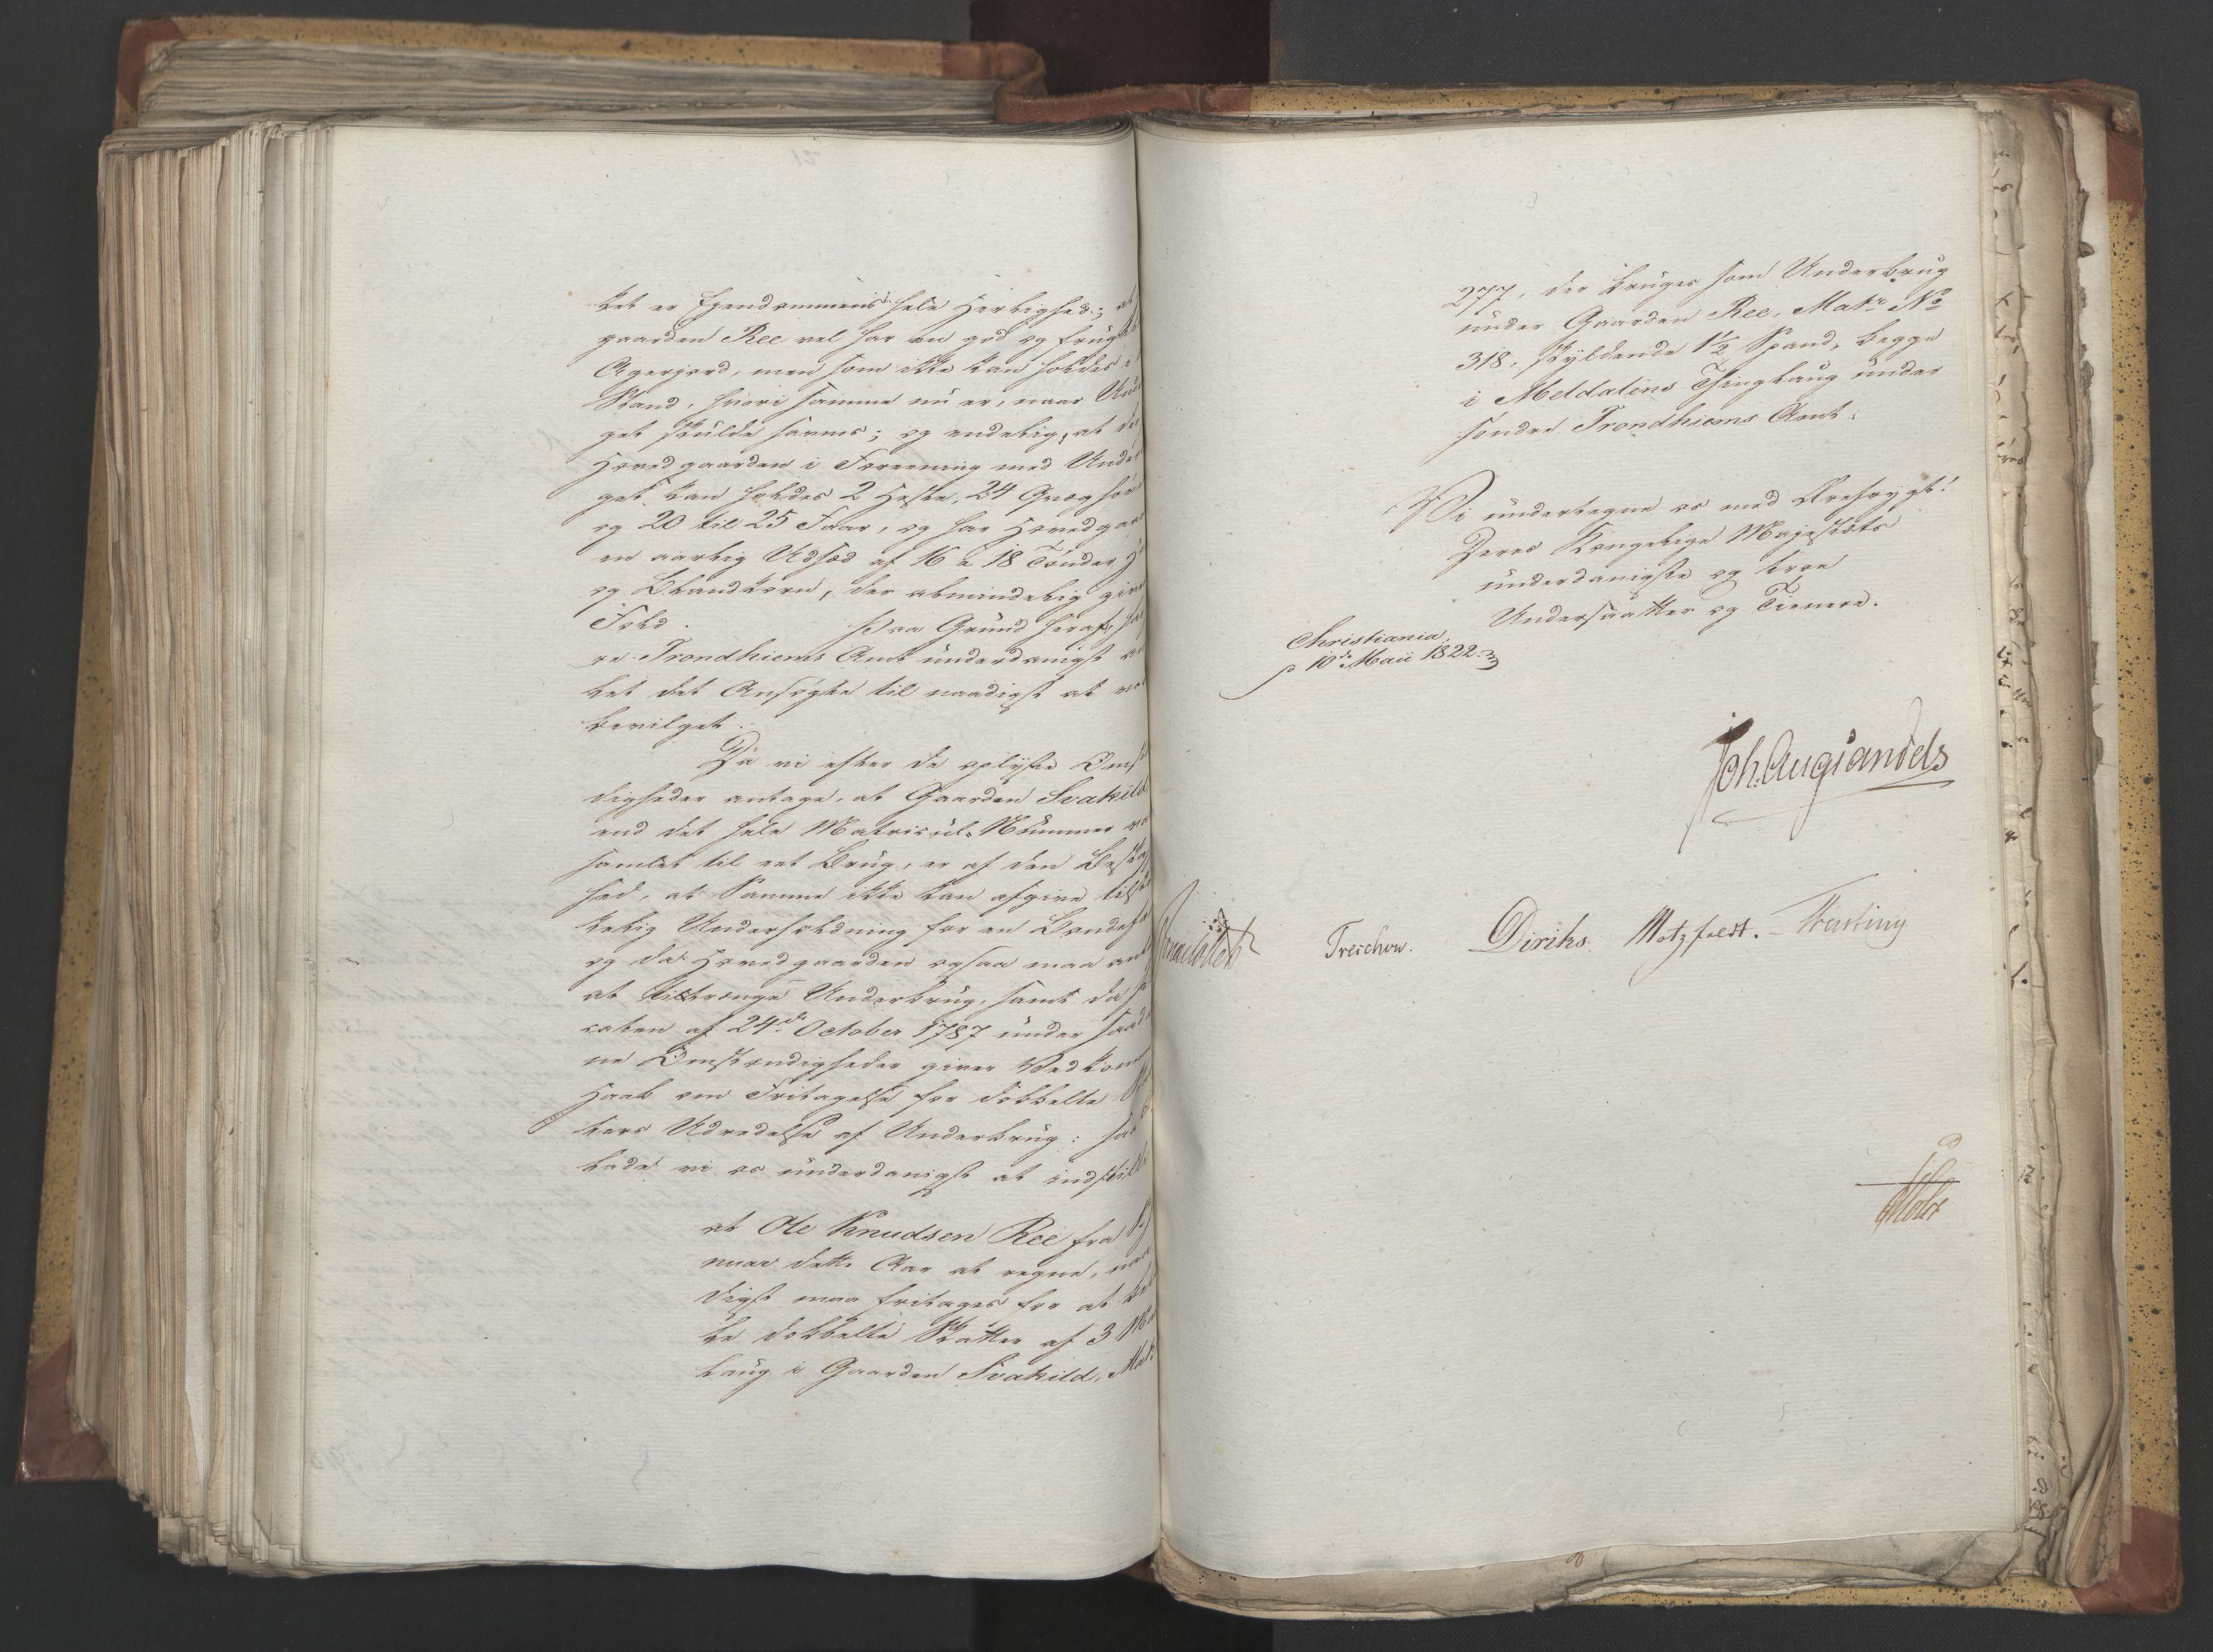 ket er Ejendommens hele Herlighed; at
gaarden Ree vel har en god og frugt
Agerjord, men som ikke kan holdes i
Stand, hvori samme nu er, naar Und
get skulde savnes; og endelig, at der
Hovedgaarden i Foreening med Under
get kan holdes 2 Heste, 24 Qvæghøv
og 20 til 25 Faar, og har Hovedgaar
en aarlig Udsæd af 16 a 18 Tønder
og Blandkorn, der almindelig give
Fold. Paa Grund heraf, har
re Trondhiems Amt underdanigst
let det Ansøgte til naadigst at vor
bevilget.
Da vi efter de oplyste Omst
digheder antage, at Gaarden Svakild
end det hele Matricul-Nummer var
samlet til eet Brug, er af den Beskaf
hed, at Samme ikke kan afgive til
kelig Underholdning for en Bondefa
og da Hovedgaarden ogsaa maa an
at tiltrænge Underbrug, samt da
caten af 24de October 1787 under saad
ne Omstændigheder giver Vedkom
Haab om Fritagelse for dobbelte
ters Udredelse af Underbrug: saa
lade vi os underdanigst at indstille
at Ole Knudsen Ree fra
nuar dette Aar at regne, naa
digst maa fritages for at
le dobbelte Skatter af 3
laug i Gaarden Svakild, Matr
277, der bruges som Underbrug
under Gaarden Ree, Matr. No
318, skyldende 1½ Spand, begge
i Meldalens Thinglaug under
søndre Trondhiems Amt.
Vi undertegne os med Ærefrygt!
Deres Kongelige Majestæts
underdanigste og troe
Undersaatter og Tienere.
Christiania,
10de Maii 1822.
Joh. Aug Sandels
Treschow. Diriks. Motzfeldt. Fasting
Holst